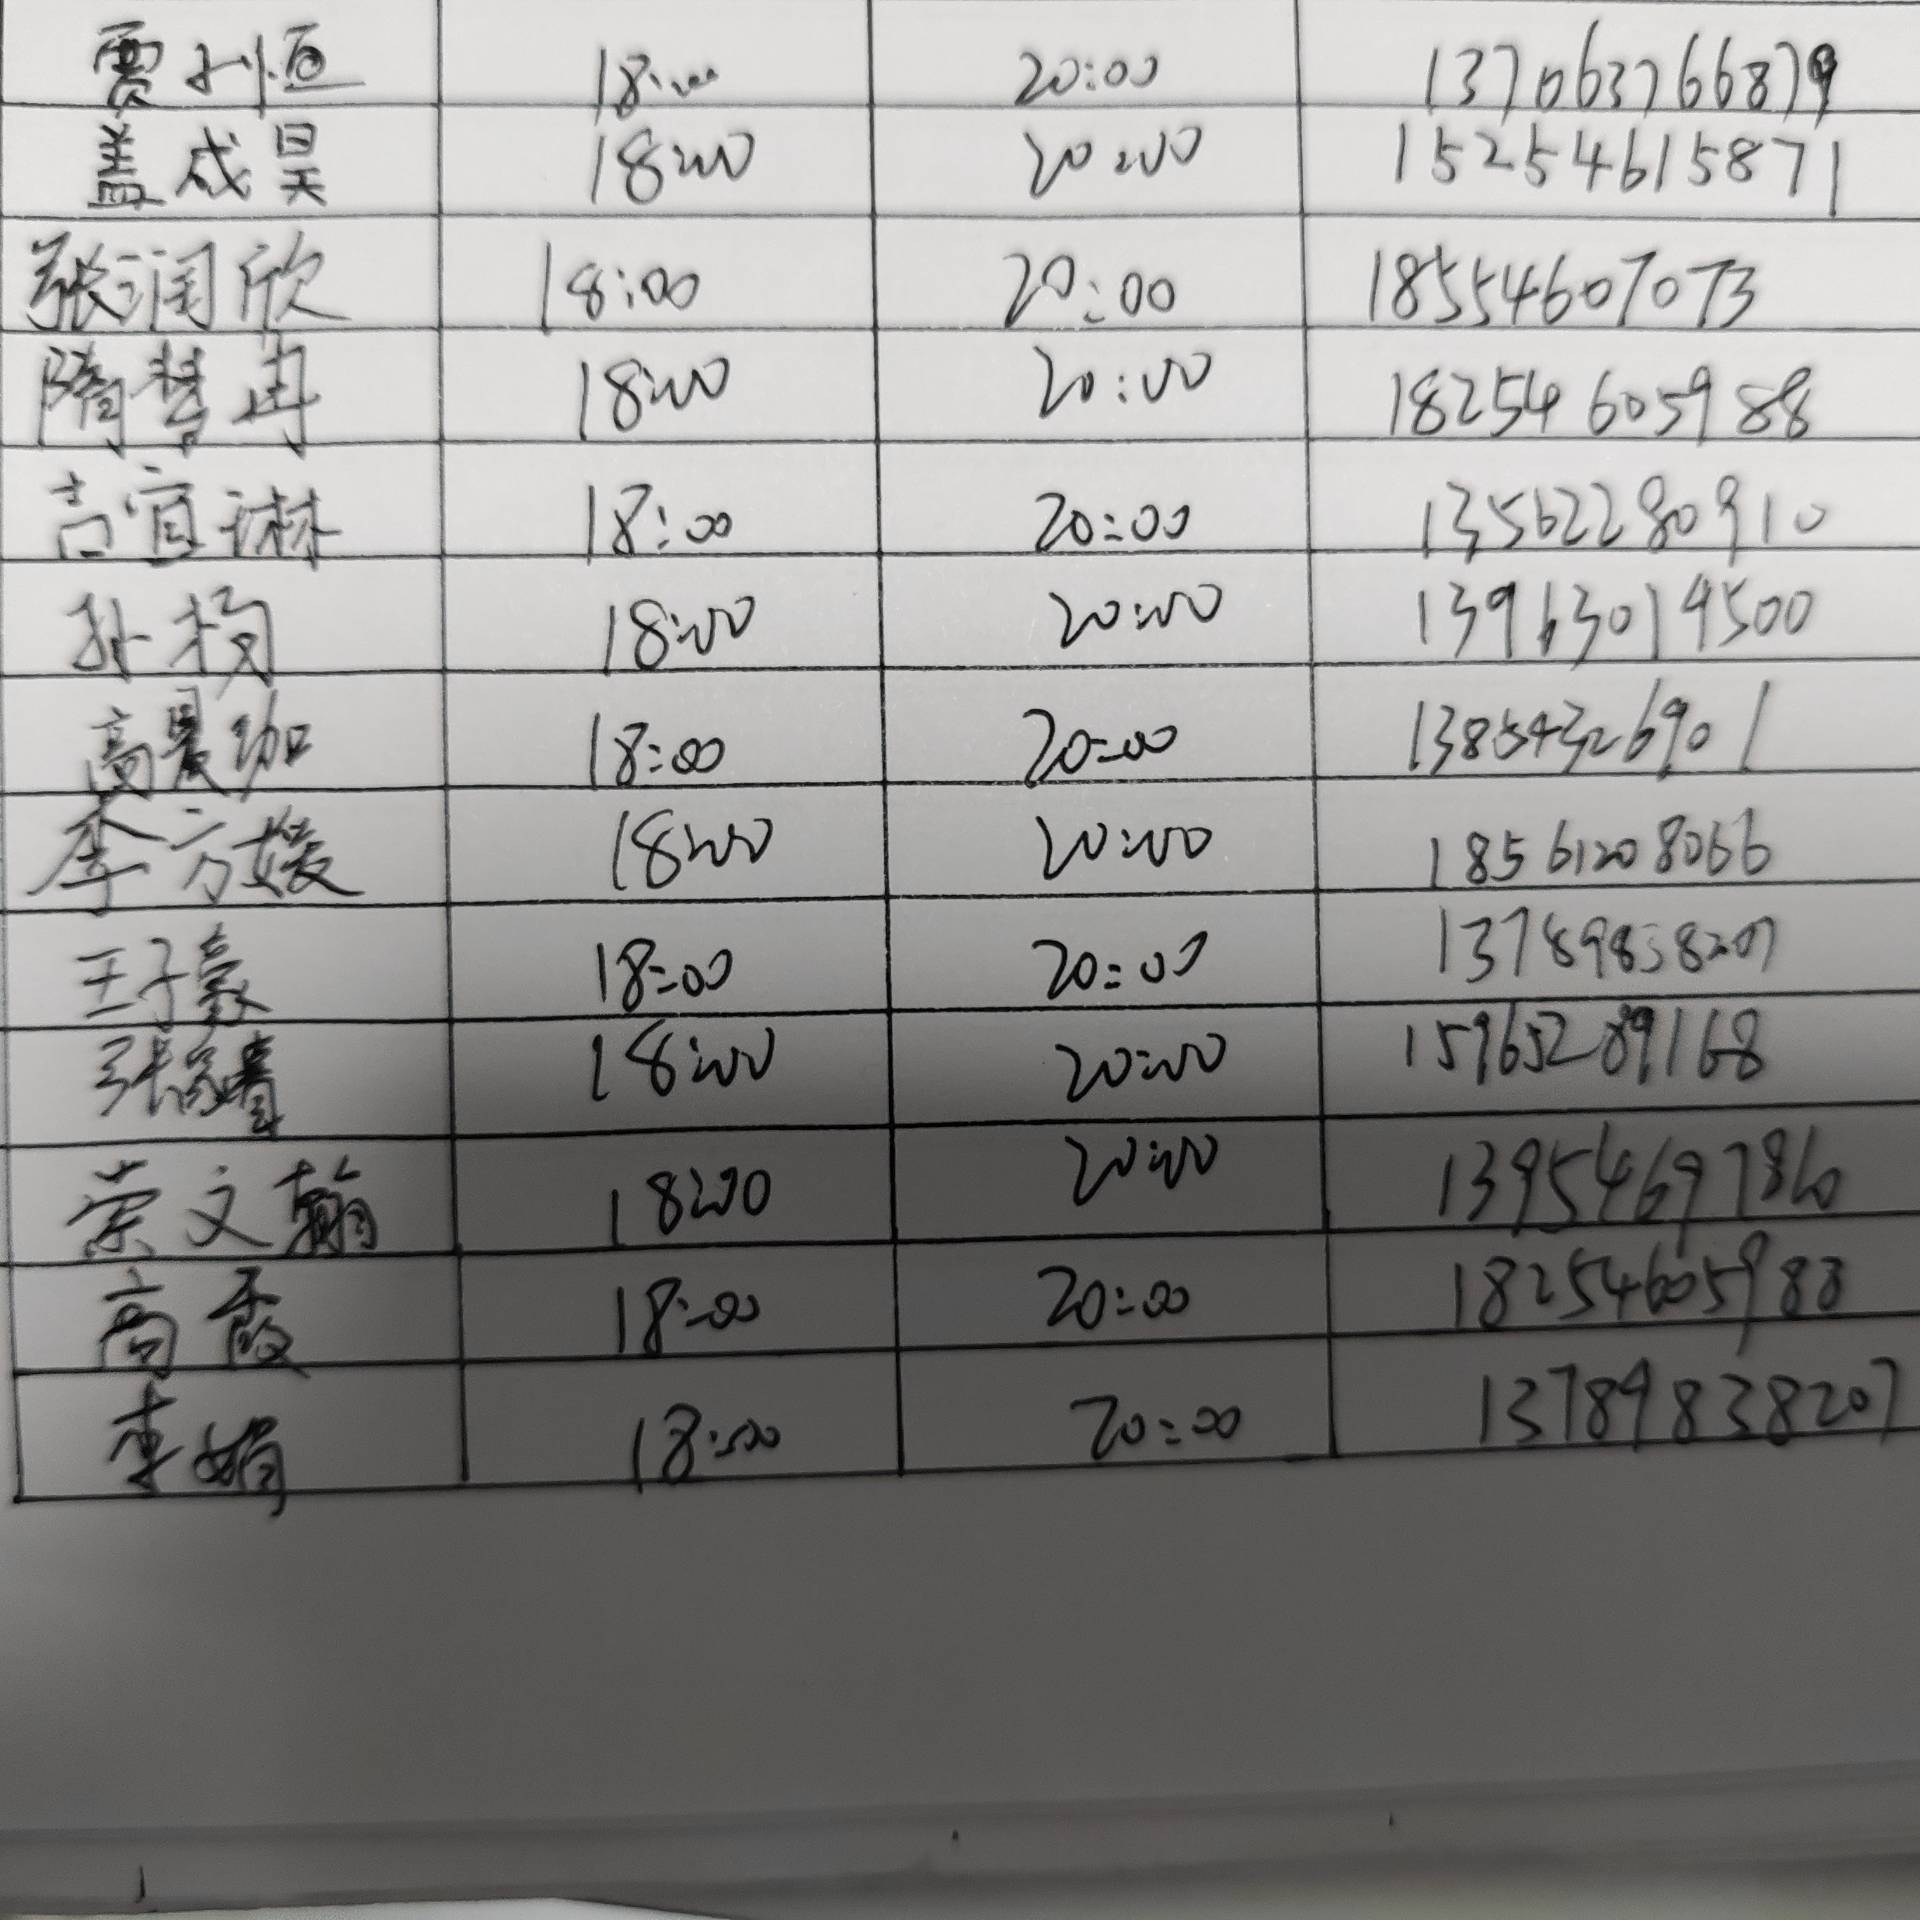 贾利恒 18:00 20:00 137063766879
盖成昊 18:00 20:00 15254615871
张润欣 18:00 20:00 18554607073
隋梦冉 18:00 20:00 18254605988
吉宜琳 18:00 20:00 13562280910
孙 18:00 20:00 13963014500
高景珈 18:00 20:00 13854326901
李方媛 18:00 20:00 18561208066
王子豪 18:00 20:00 13789838207
张 18:00 20:00 15965289168
崇文翰 18:00 20:00 13954697860
高霞 18:00 20:00 18254605988
李娟 18:00 20:00 13789838207